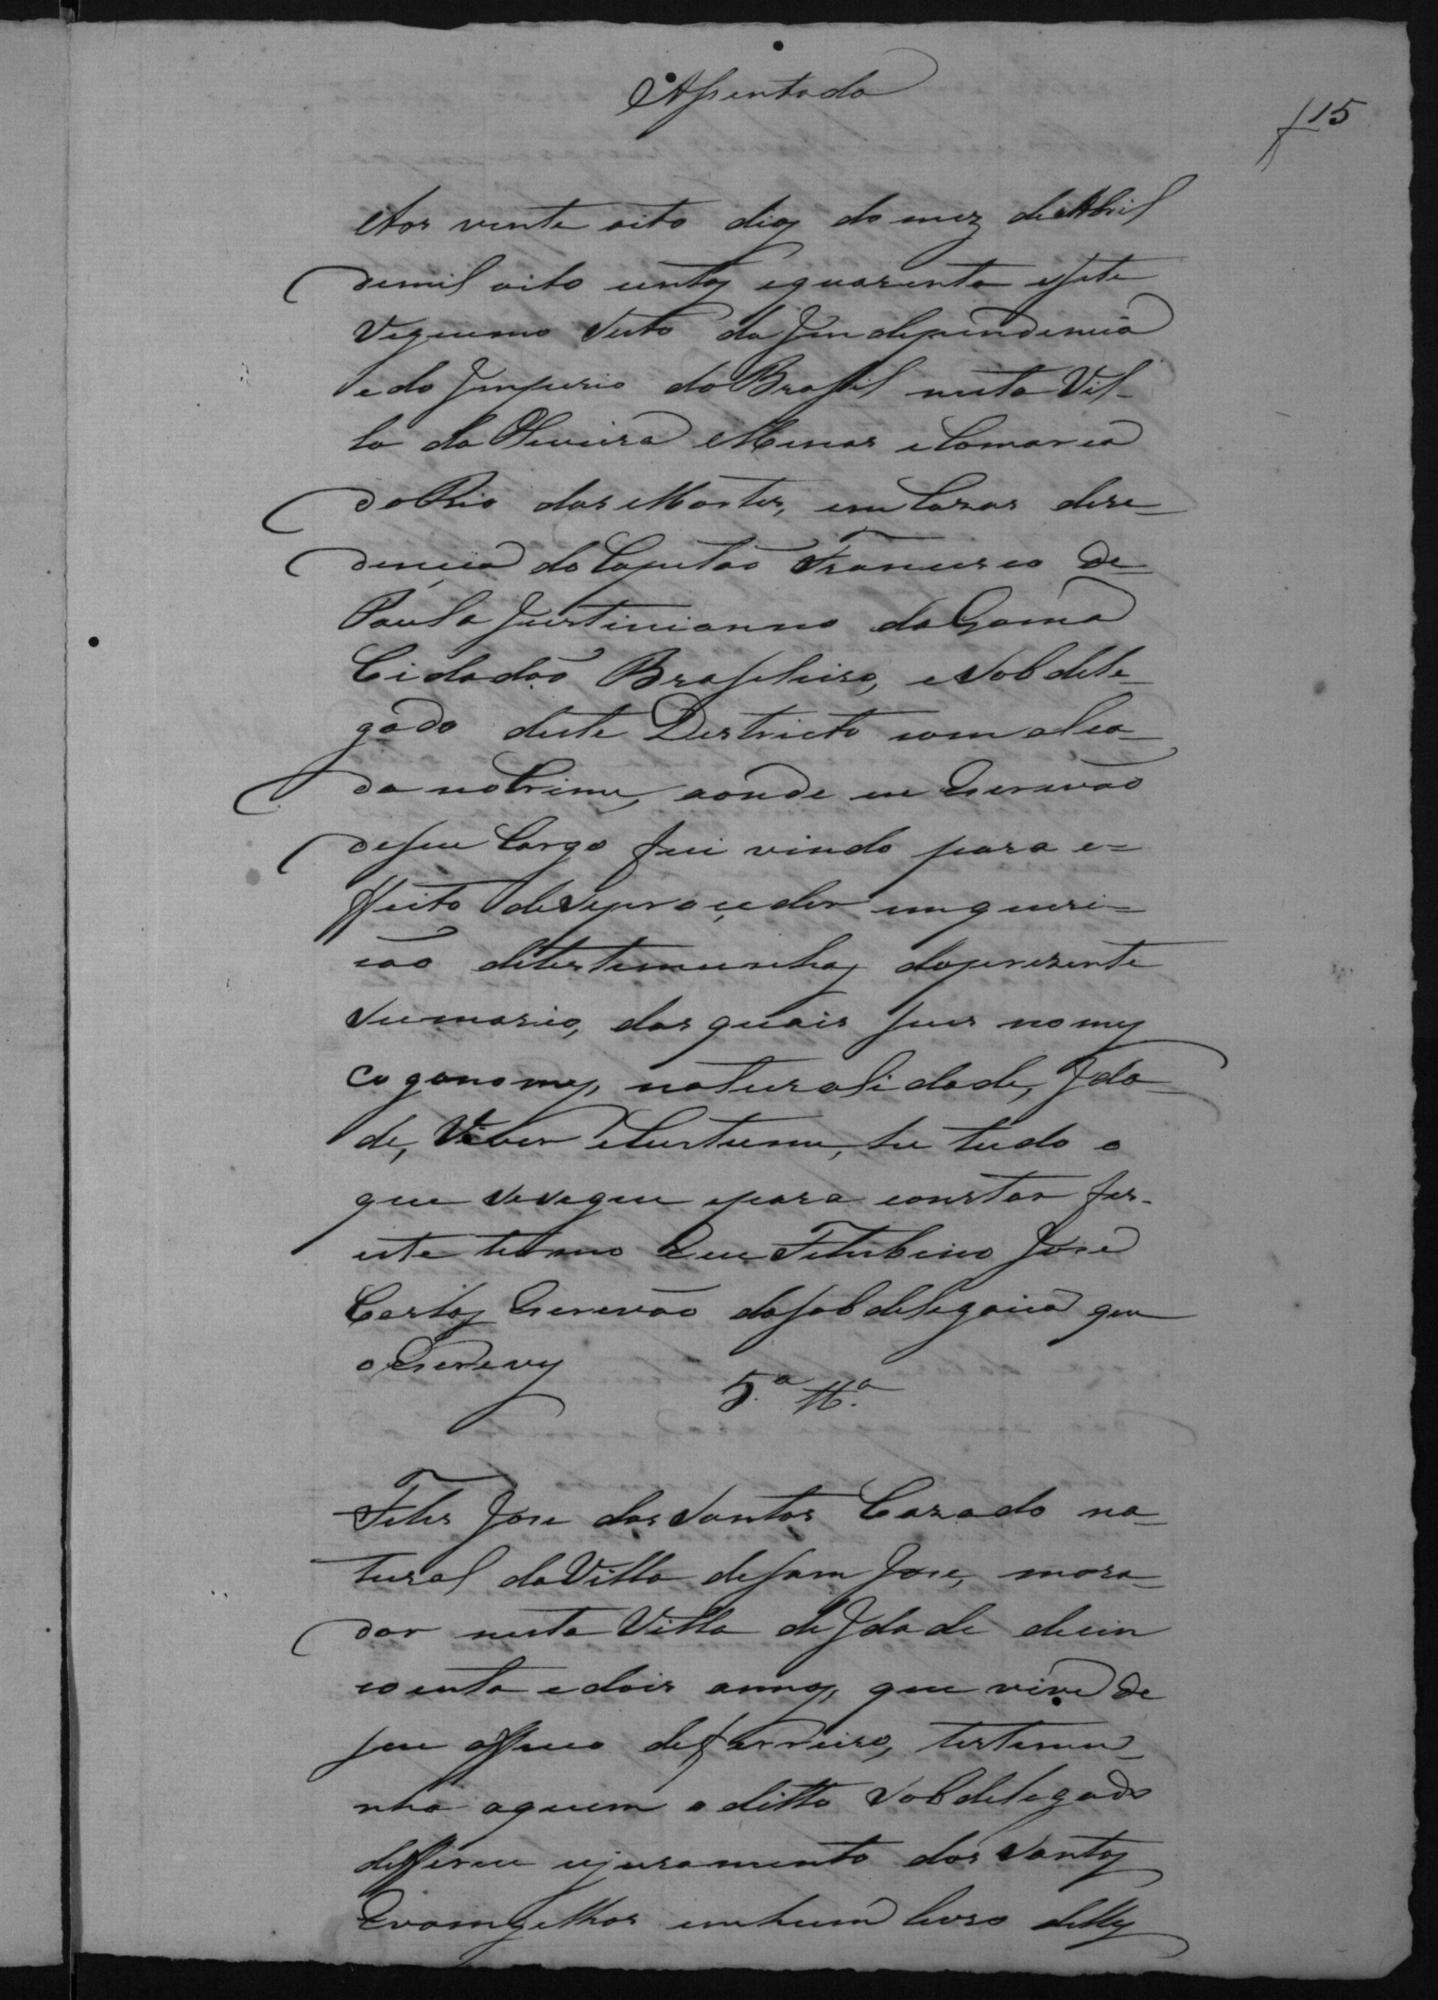 Assentada
f 15
Aos vente oito dias do mez de Abril
demil oito centos equarenta esete
Vegecimo Sexto da Independencia
e do Imperio do Brasil nesta Vil-
la da Oliveira Minas e Comarca
do Rio das Mortes, em Cazas de resi-
dencia do Capitão Francisco de
Paula Justinianno da Gama
Cidadão Brasileiro, e Sobdele-
gado deste Destricto com alca-
da no Crime, aonde eu Escrevão
deseu Cargo fui vindo para e=
ffeito de se proçeder inqueri=
cão detestemunhas do prezente
Sumario, das quais seus nomes
cogonomes, naturalidade, Ida-
de, Viver eCustume, he tudo o
que se segue epara constar fis-
este termo Eu Felisbino José
Cartos Escrevão dasobdelegacia que
o Escrevy
5.ª tt.ª
Felis Jose dos Santos Cazado na-
tural da Villa de Sam Jose, mora-
dor nesta Villa de Idade decin
coenta e dois annos, que vive de
seu officio de ferreiro, testemu-
nha aquem o ditto Sobdelegado
defferiu ojuramento dos Santos
Evamgelhos emhum livro delles